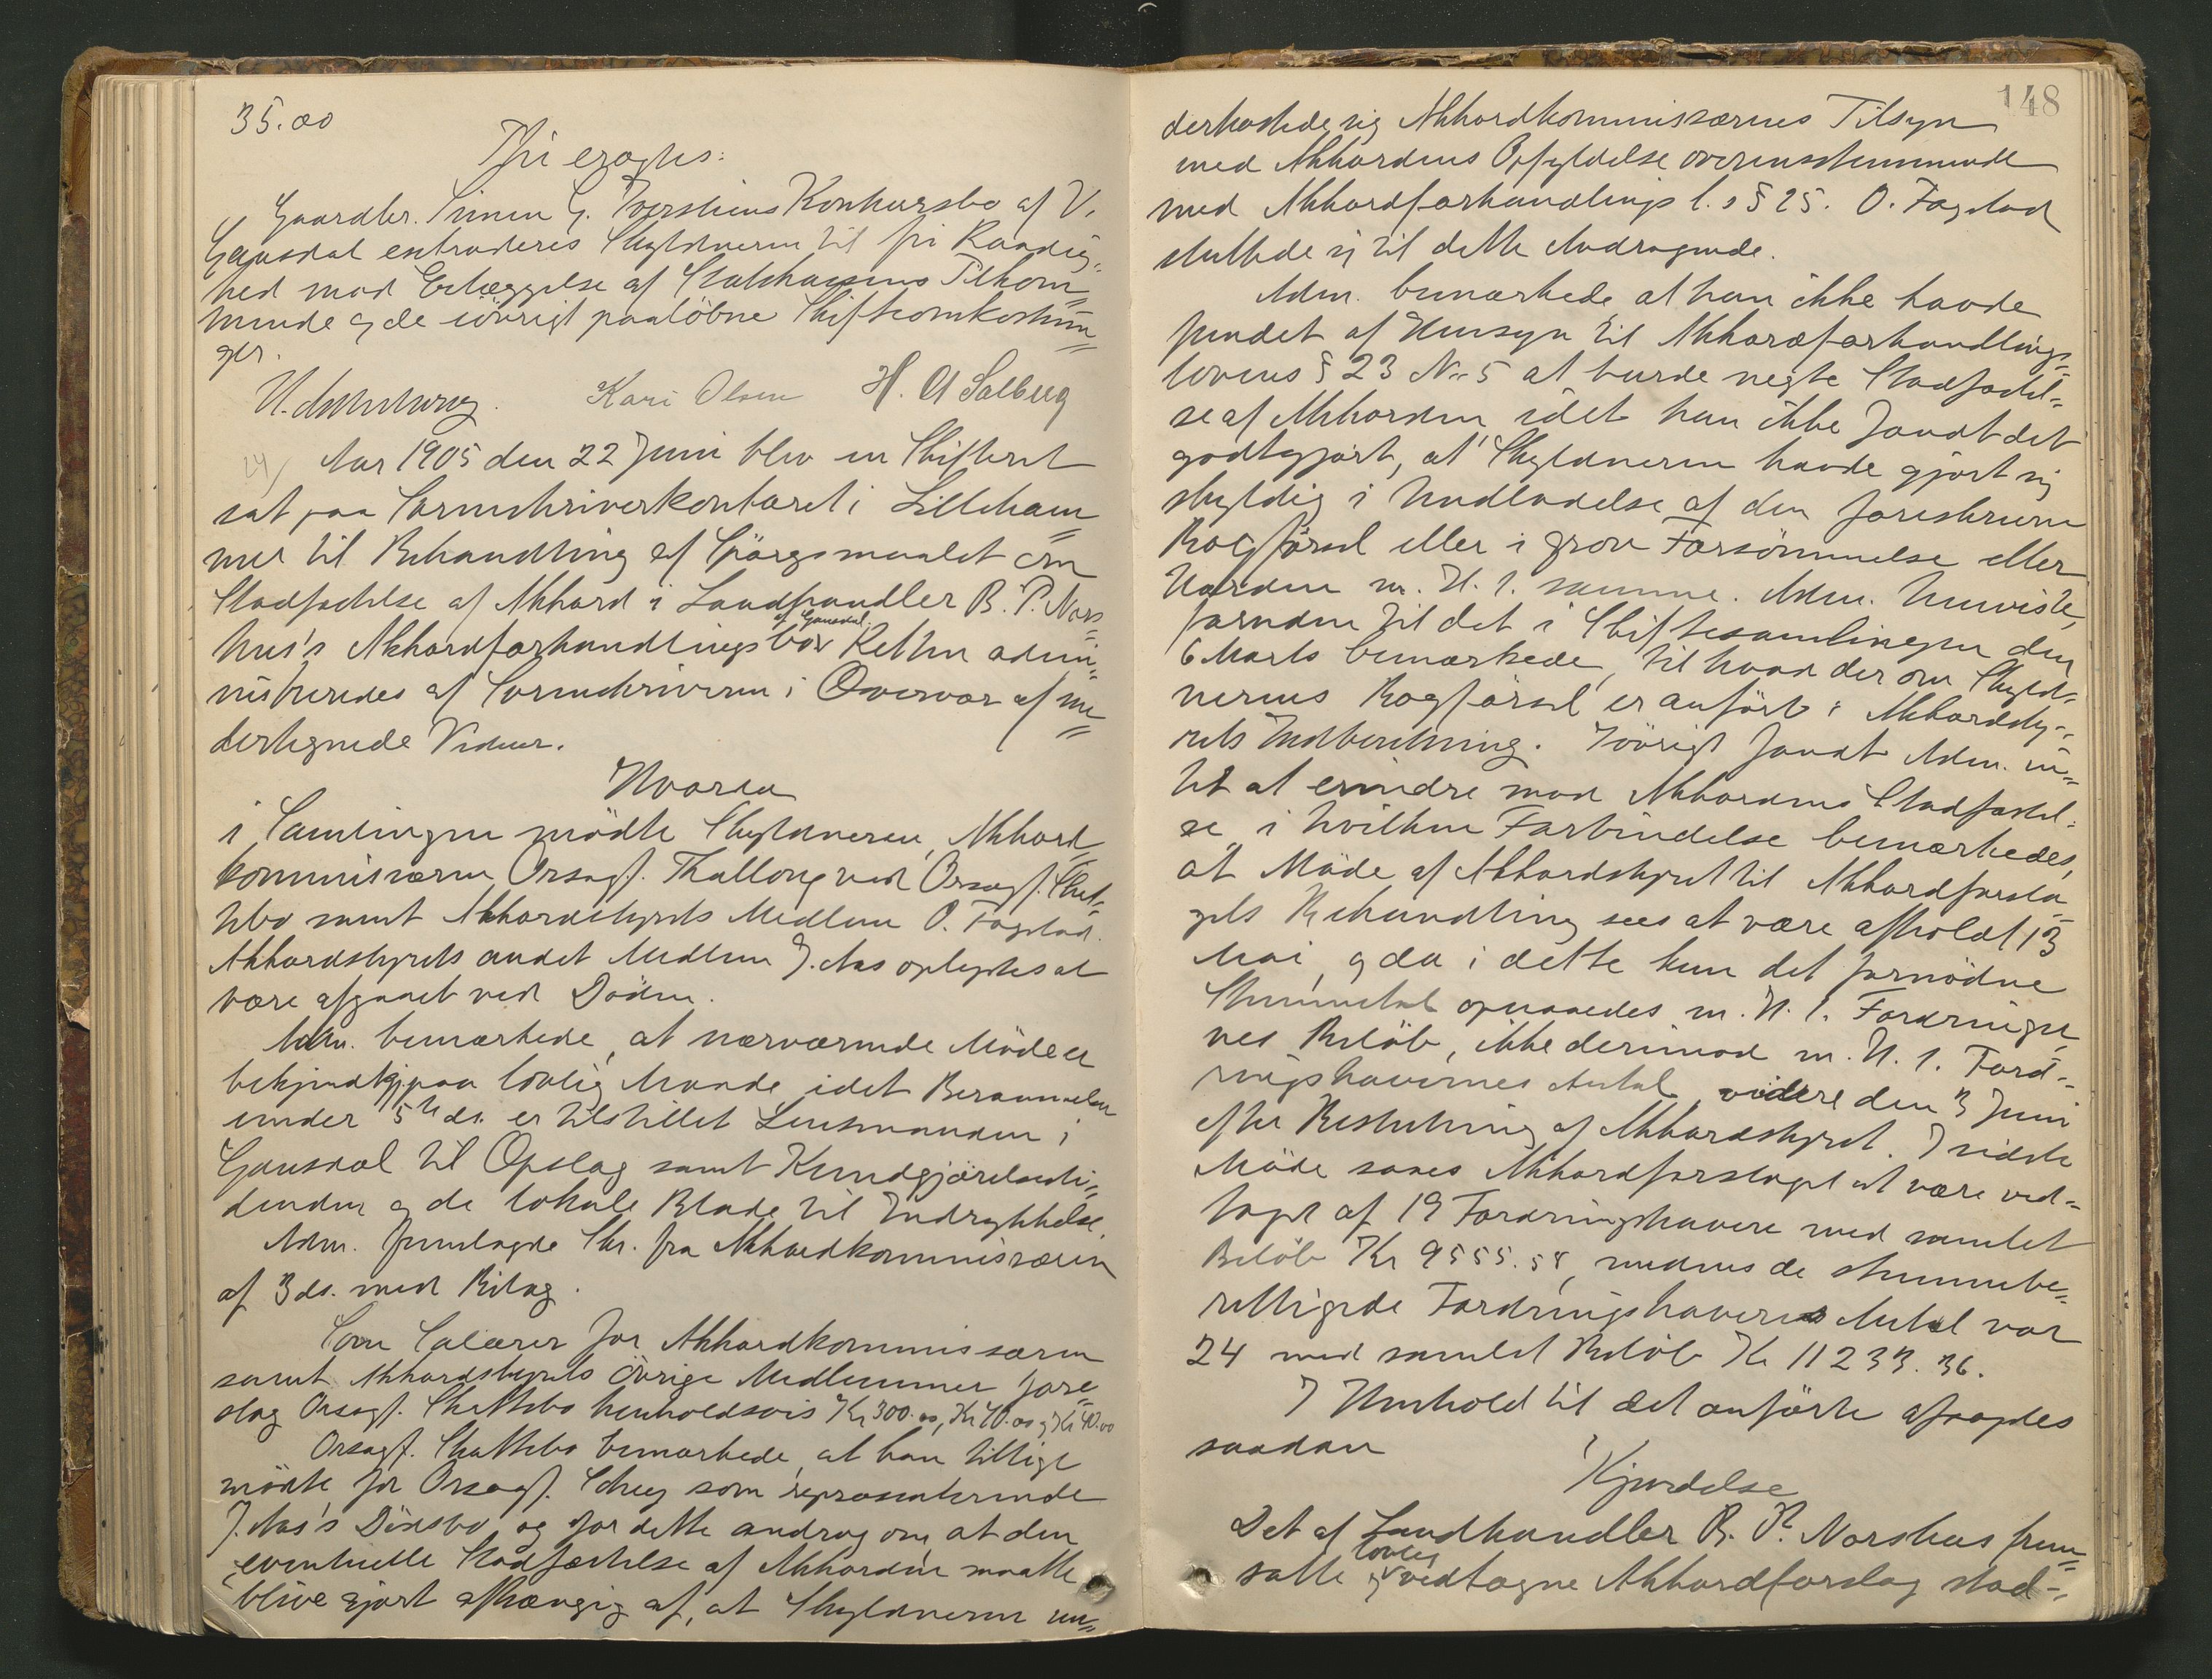 35.00
Thi eragtes:
Gaardbr. Simen G. Iversliens Konkursbo af V.
Gausdal extraderes Skyldneren til fri Raadig-
hed mod Erlæggelse af Statskassens Tilkom-
mende og de iøvrigt paaløbne Skifteomkostnin-
ger.
Kari Olsen H. A Salberg
Aar 1905 den 22 Juni blev en Skifteret
sat paa Sorenskriverkontoret i Lilleham-
mer til Behandling af Spørgsmaalet om
Stadfæstelse af Akkord i Landhandler B. P. Nors-
hus's Akkordforhandlingsbo af Gausdal. Retten admi-
nistreredes af Sorenskriveren i Overvær af un-
dertegnede Vidner.
Hvorda
i Samlingen mødte Skyldneren, Akkord-
kommissæren Orsagf. Thallaug ved Orsagf. Skat-
tebo samt Akkordstyrets Medlem O. Fagstad.
Akkordstyrets andet Medlem J. Aas oplystes at
være afgaaet ved Døden.
Adm. bemærkede, at nærværende Møde er
bekjendtgj. paa lovlig Maade idet Berammelsen
under 5te ds. er tilstillet Lensmanden i
Gausdal til Opslag samt Kundgjørelsesti-
denden og de lokale Blade til Indrykkelse.
Adm. fremlagde Skr. fra Akkordkommissæren
af 3 ds. med Bilag.
Som Salærer for Akkordkommissæren
samt Akkordstyrets øvrige Medlemmer fore-
slog Orsagf. Skattebo henholdsvis Kr 300.00, Kr 40.00 og Kr 40.00
Orsagf. Skattebo bemærkede, at han tillige
mødte for Orsagf. som repræsenterende
J. Aas's Dødsbo og for dette androg om at den
eventuelle Stadfæstelse af Akkorden maatte
blive gjort afhængig af, at Skyldneren un-
148
derkastede sig Akkordkommissærens Tilsyn
med Akkordens Opfyldelse overensstemmende
med Akkordforhandlings l.s § 25. O. Fagstad
sluttede sig til dette Andragende.
Adm. bemærkede at han ikke havde
fundet af Hensyn til Akkordforhandlings-
lovens § 23 No 5 at burde negte Stadfæstel-
se af Akkorden idet han ikke fandt det
godtgjort, at Skyldneren havde gjort sig
skyldig i Undladelse af den foreskrevne
Bogførsel eller i grov Forsømmelse eller
Uorden m. H. t. samme. Adm. henviste,
foruden til det i Skiftesamlingen den
6 Marts bemærkede, til hvad der om Skyld-
nerens Bogførsel er anført i Akkordsty-
rets Indberetning. Iøvrigt fandt Adm. in-
tet at erindre mod Akkordens Stadfæstel-
se, i hvilken Forbindelse bemærkedes,
at Møde af Akkordstyret til Akkordforsla-
gets Behandling sees at være afholdt 13
Mai, og da i dette kun det fornødne
Stemmetal opnaaedes m. H. t. Fordringer-
nes Beløb, ikke derimod m. H. t. Ford-
ringshavernes Antal, videre den 3 Juni
efter Beslutning af Akkordstyret. I sidste
Møde saaes Akkordforslaget at være ved-
taget af 19 Fordringshavere med samlet
Beløb Kr 9555.58, medens de stemmebe-
rettigede Fordringshaveres Antal var
24 med samlet Beløb Kr 11233.36.
I Henhold til det anførte afsagdes
saadan
Kjendelse
Det af Landhandler B. P. Norshus frem-
satte og lovlig vedtagne Akkordforslag stad-